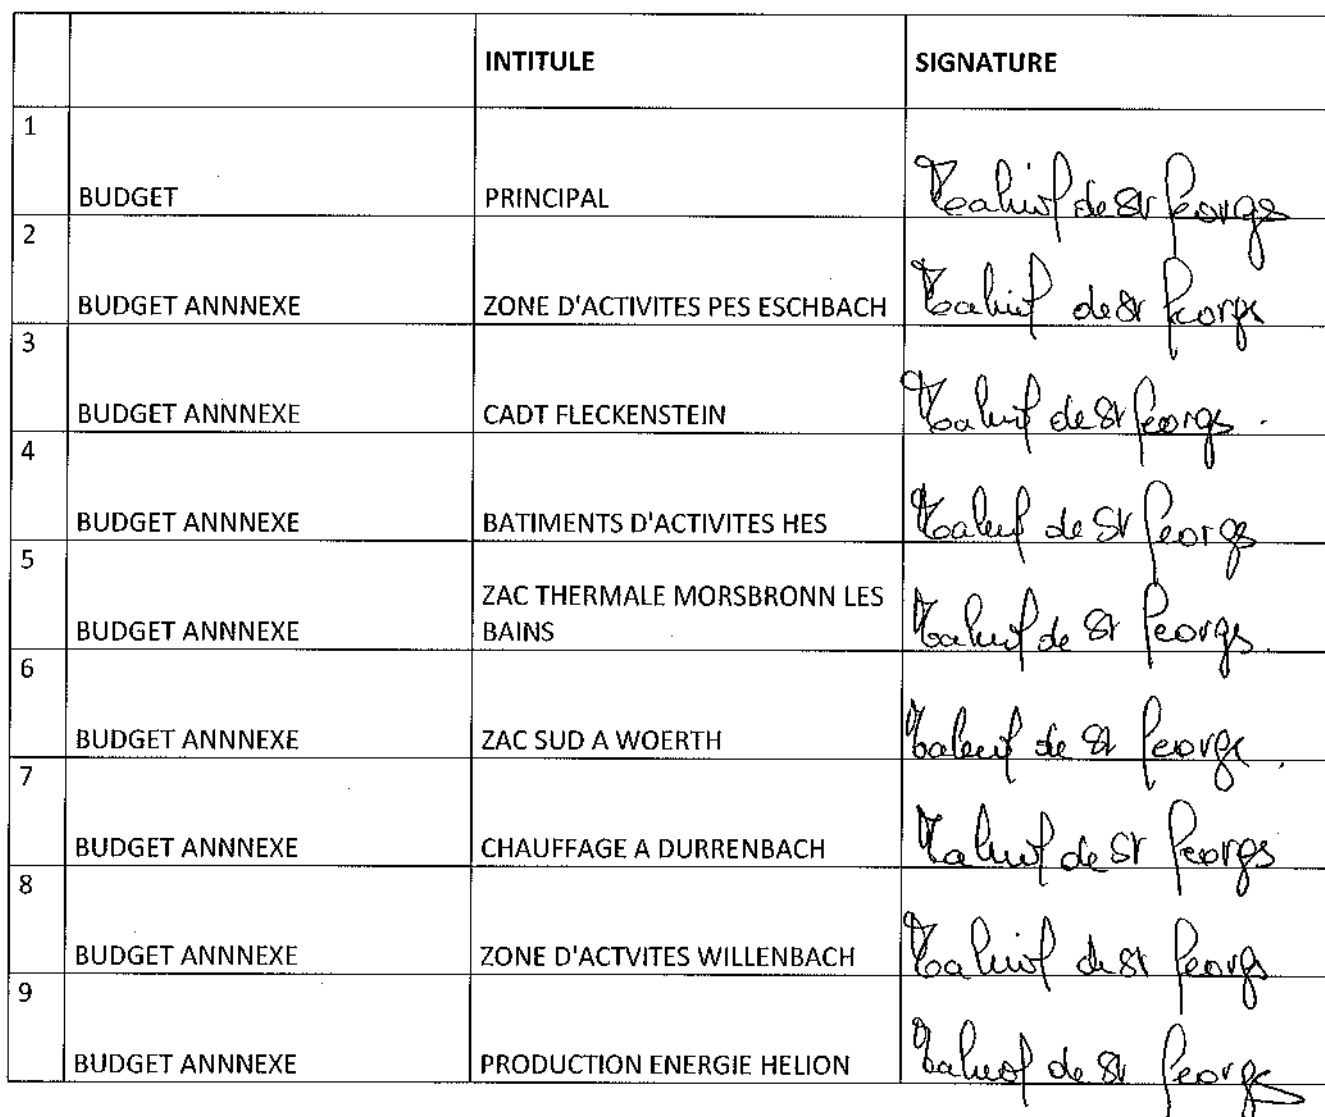 INTITULE SIGNATURE
1
BUDGET PRINCIPAL de St Georges
2
BUDGET ANNNEXE ZONE D'ACTIVITES PES ESCHBACH de St Georges
3
BUDGET ANNNEXE CADT FLECKENSTEIN de St Georges
4
BUDGET ANNNEXE BATIMENTS D'ACTIVITES HES de St Georges
5
ZAC THERMALE MORSBRONN LES
BUDGET ANNNEXE BAINS de St Georges
6
BUDGET ANNNEXE ZAC SUD A WOERTH de St Georges
7
BUDGET ANNNEXE CHAUFFAGE A DURRENBACH de St Georges
8
BUDGET ANNNEXE ZONE D'ACTVITES WILLENBACH de St Georges
9
BUDGET ANNNEXE PRODUCTION ENERGIE HELION de St Georges